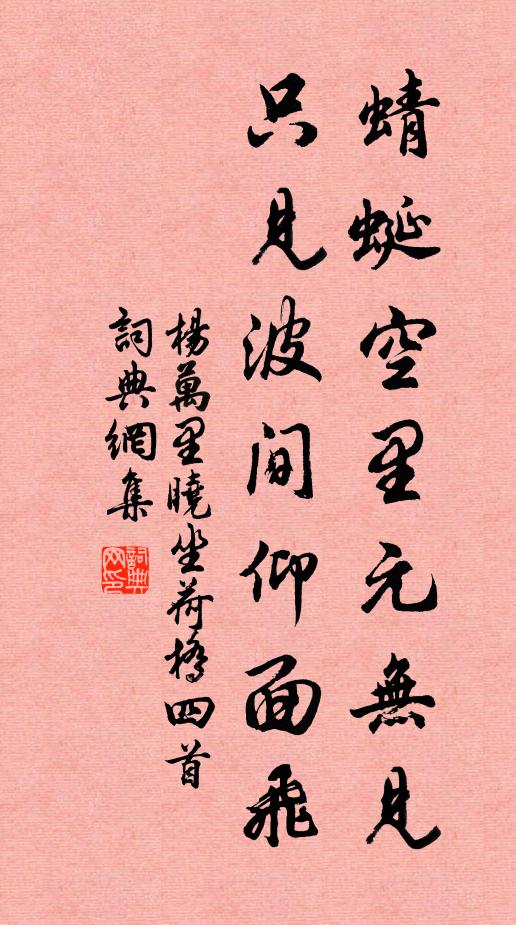 蜻蜓空里元無見
只見波間仰面飛
楊萬里曉坐荷橋四首
詞典網集
詞典网印